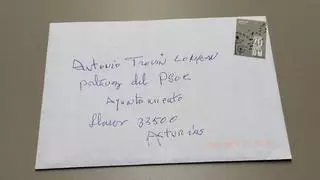 Antonio Trevín Lomban
portavoz del PSOE
Ayuntamiento
Llanes 33500
Asturias